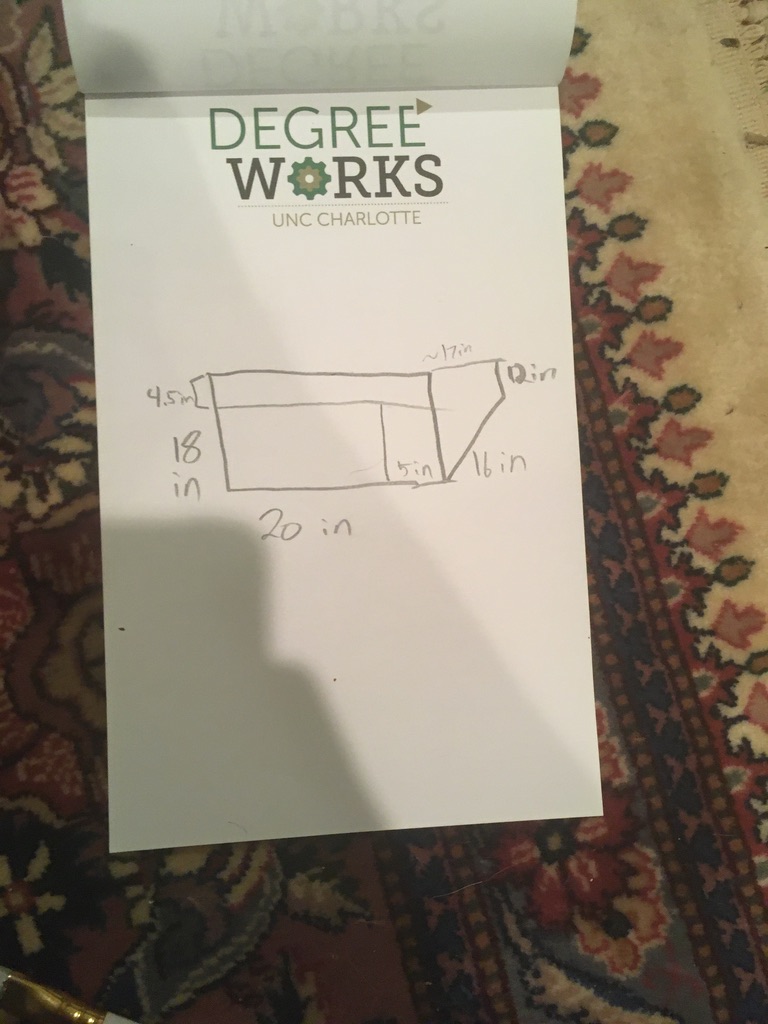 DEGREE
WORKS
UNC CHARLOTTE
4.5in
12in
18
in
5in
16 in
20 in